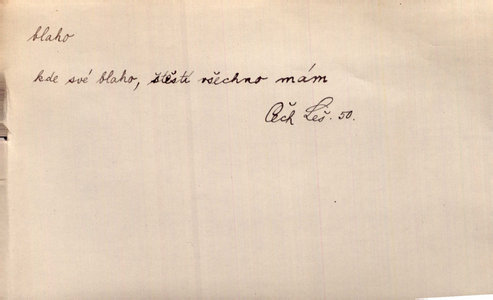 blaho
kde své blaho, štěstí všechno mám
Čech Leš. 50.